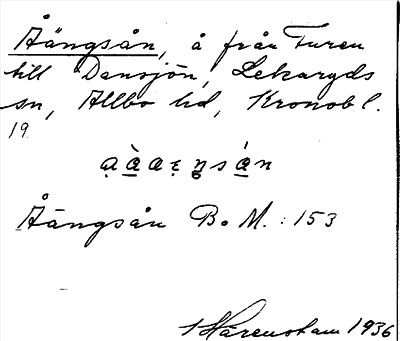 Åängsån, å från Furen
till Dansjön, Lekaryds
sn, Allbo hd, Kronob l.
19
Åängsån B. M. : 153
Harenstam 1936